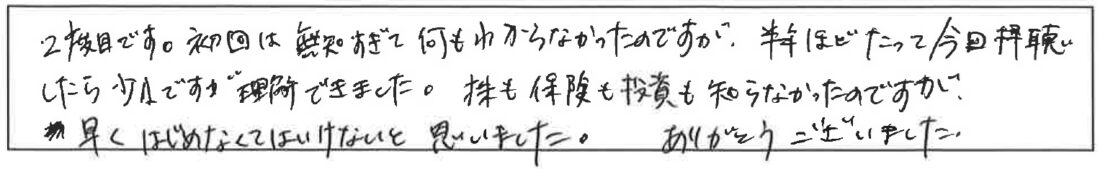 2度目です。初回は無知すぎて何もわからなかったのですが、半年ほどたって今回拝聴い
したら少しですが理解できました。株も保険も投資も知らなかったのですが、
早くはじめなくてはいけないと思いました。 ありがとうございました。